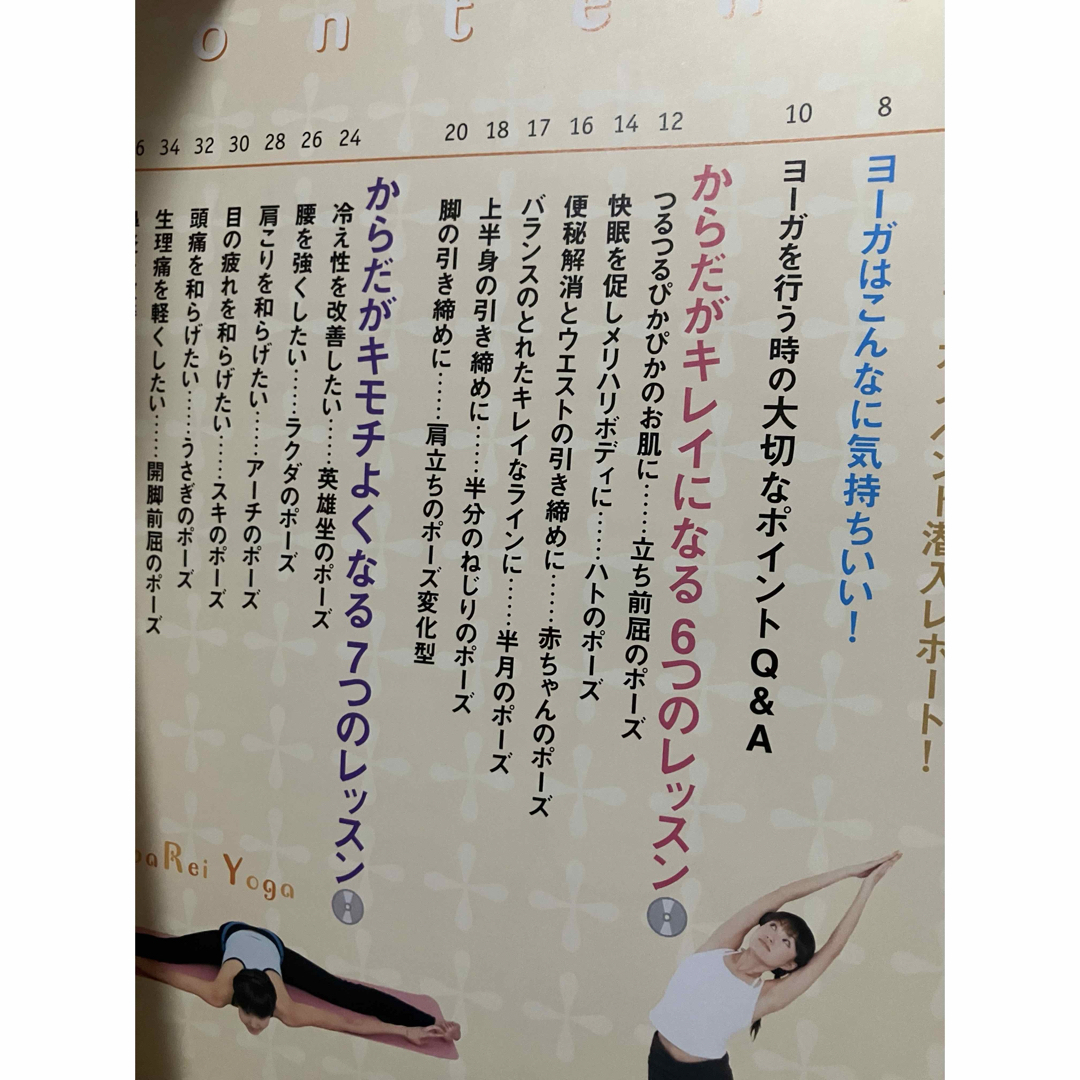 onten
イベント潜入レポート！
8
ヨーガはこんなに気持ちいい！
10
ヨーガを行う時の大切なポイントQ&A
からだがキレイになる6つのレッスン
12
つるつるぴかぴかのお肌に……立ち前屈のポーズ
14
快眠を促しメリハリボディに……ハトのポーズ
16
便秘解消とウエストの引き締めに……赤ちゃんのポーズ
17
バランスのとれたキレイなラインに……半月のポーズ
18
上半身の引き締めに……半分のねじりのポーズ
20
脚の引き締めに……肩立ちのポーズ変化型
からだがキモチよくなる7つのレッスン
24
冷え性を改善したい……英雄坐のポーズ
26
腰を強くしたい……ラクダのポーズ
28
肩こりを和らげたい……アーチのポーズ
30
目の疲れを和らげたい……スキのポーズ
32
頭痛を和らげたい……うさぎのポーズ
34
生理痛を軽くしたい……開脚前屈のポーズ
6
Rei Yoga